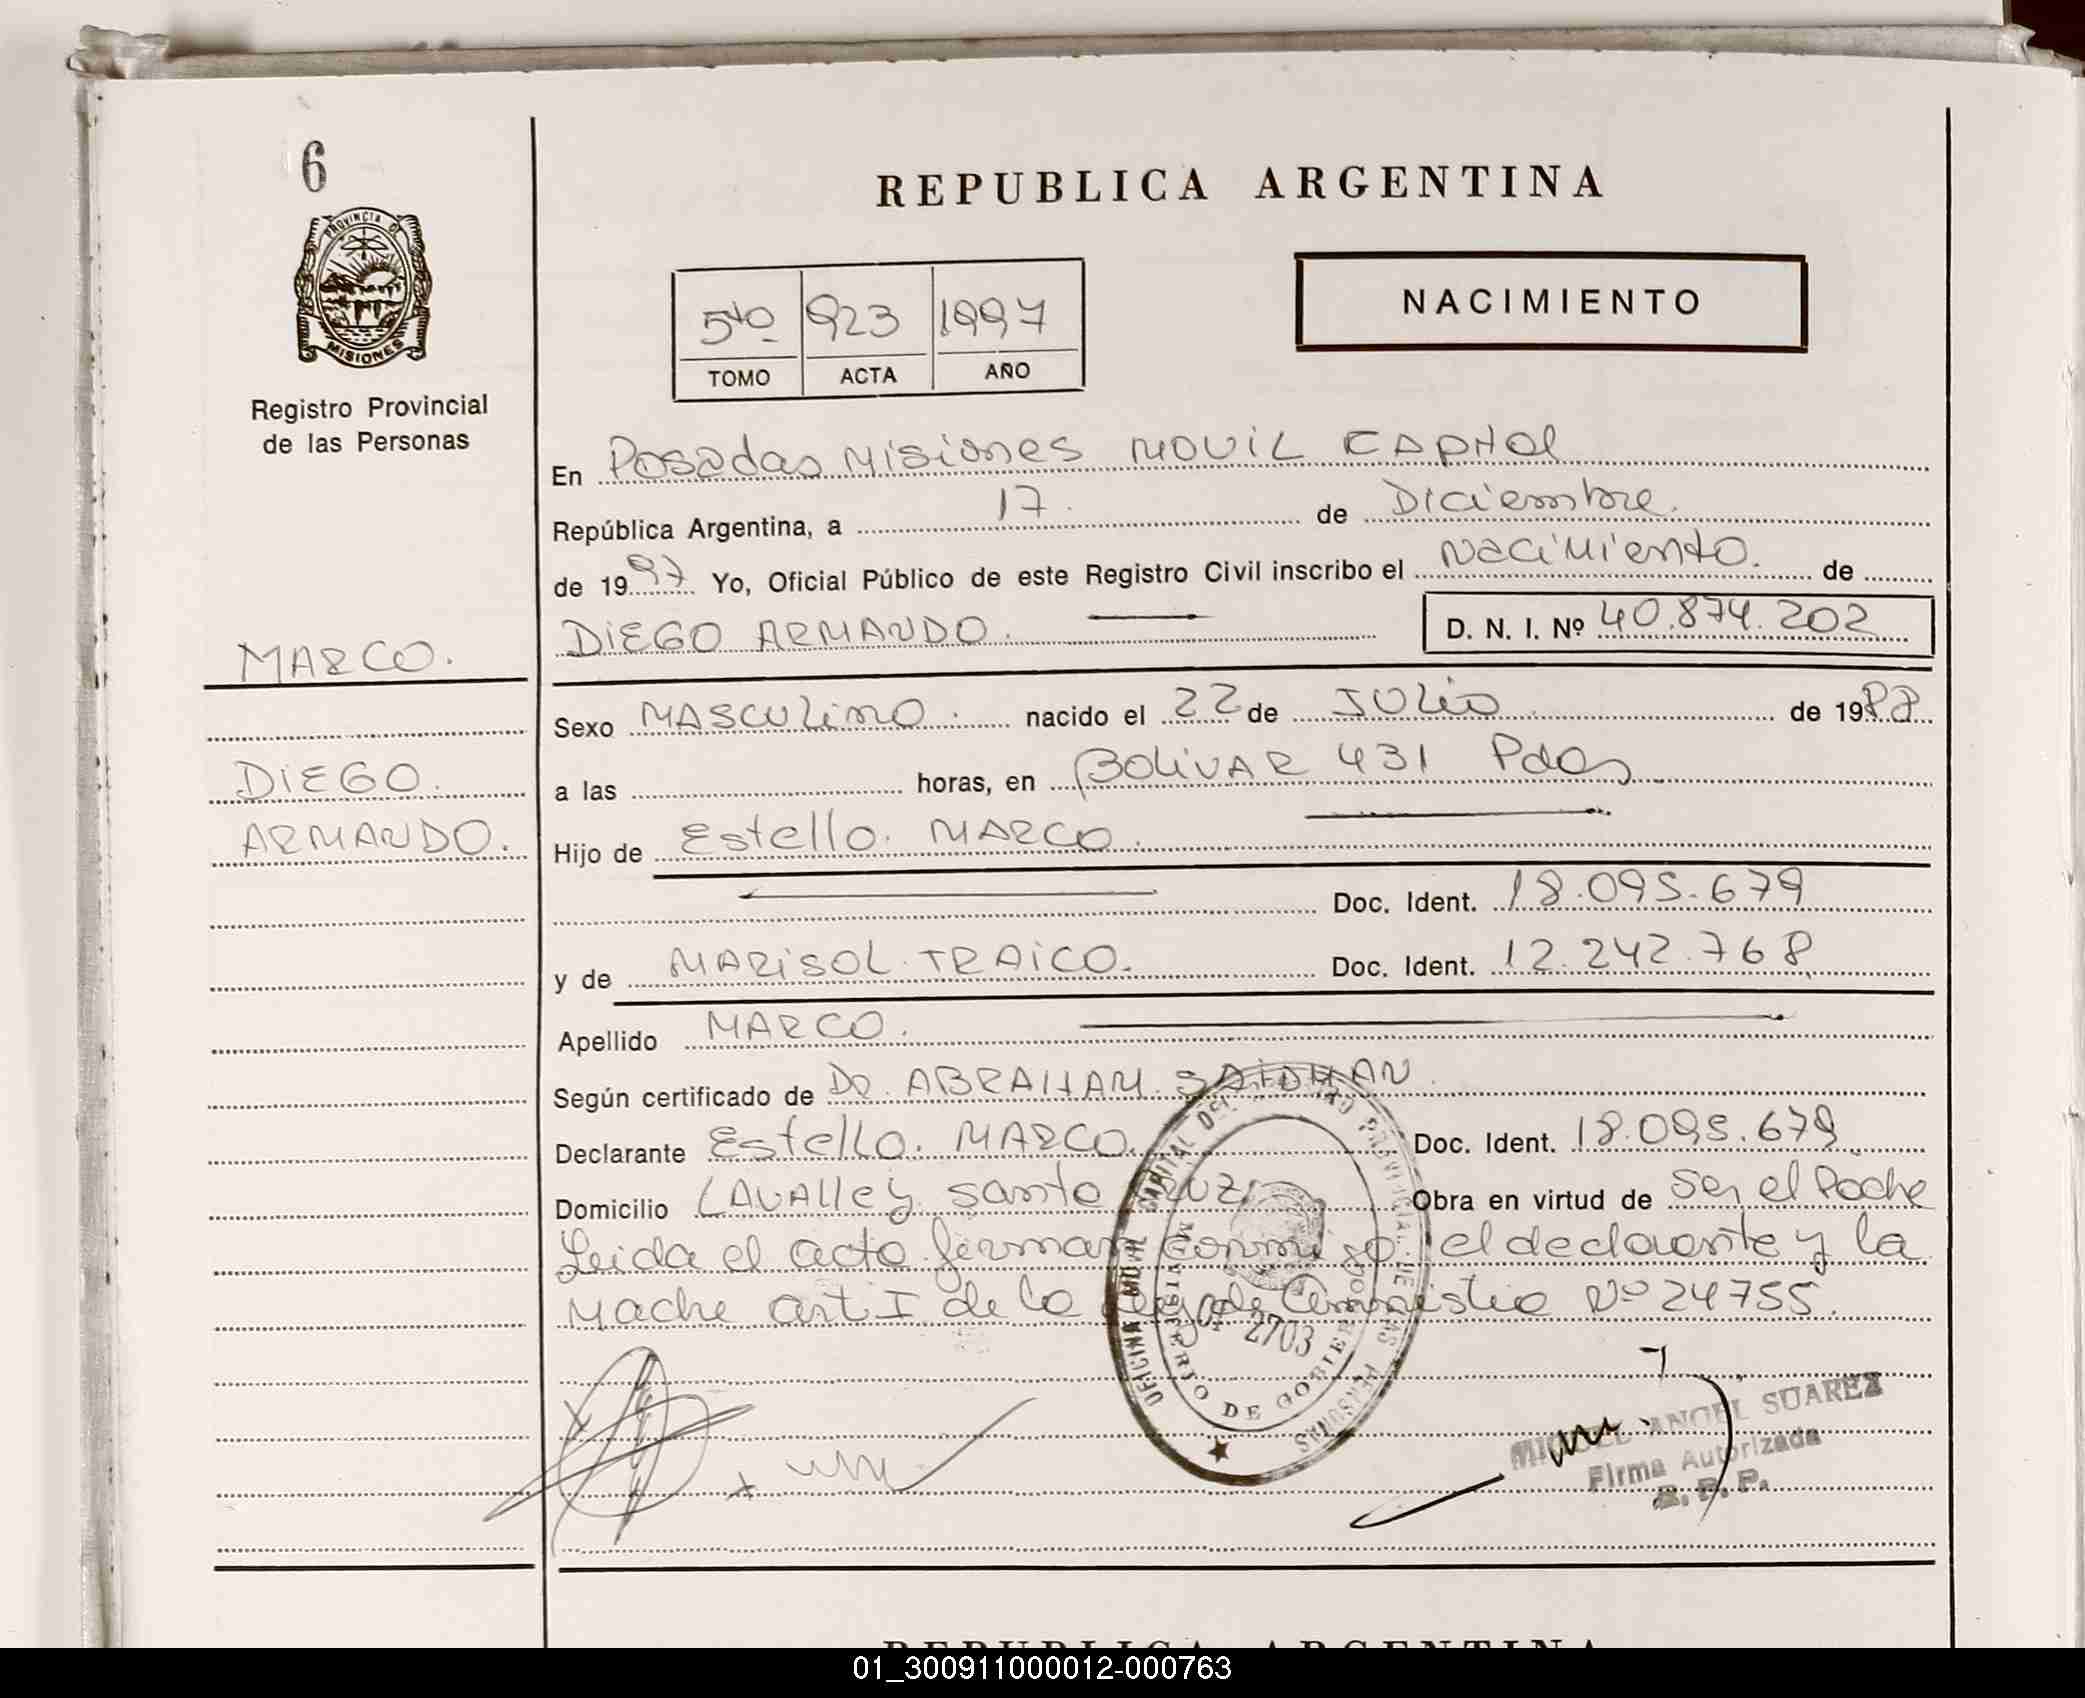 6
REPUBLICA ARGENTINA
PROVINCIA DE
MISIONES
NACIMIENTO
5to 923 1997
TOMO ACTA AÑO
Registro Provincial
de las Personas
En Posadas Misiones MOVIL CAPITAL
República Argentina, a 17. de Diciembre.
de 1997 Yo, Oficial Público de este Registro Civil inscribo el Nacimiento. de
MARCO. DIEGO ARMANDO. D. N. I. Nº 40.874.202
Sexo MASCULINO. nacido el 22 de JULIO de 19
DIEGO. a las horas, en BOLIVAR 431 Pdas
ARMANDO. Hijo de Estello. MARCO.
Doc. Ident. 18.095.679
y de MARISOL TRAICO. Doc. Ident. 12.242.768
Apellido MARCO.
Según certificado de DR. ABRAHAM SAIDMAN
Declarante Estello. MARCO. Doc. Ident. 18.095.679
Domicilio LAVALLE y Santa Cruz Obra en virtud de Ser el Padre
Leida el acta firman conmigo el declarante y la
Madre art I de la Ley de Amnistia Nº 24755.
OFICINA MOVIL CAPITAL DEL REGISTRO PROVINCIAL DE LAS PERSONAS
MINISTERIO DE GOBIERNO
2703
MIGUEL ANGEL SUAREZ
Firma Autorizada
R. P. P.
REPUBLICA ARGENTINA
01_300911000012-000763